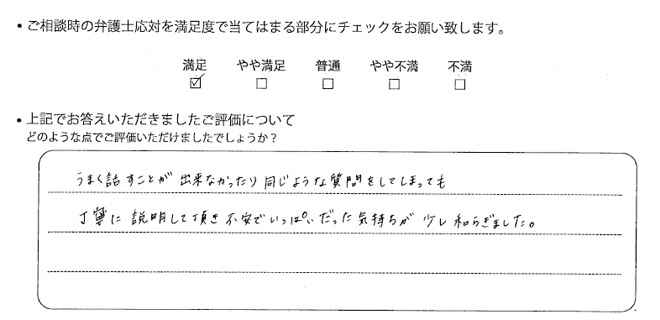 ・ご相談時の弁護士応対を満足度で当てはまる部分にチェックをお願い致します。
満足 やや満足 普通 やや不満 不満
☑ ☐ ☐ ☐ ☐
・上記でお答えいただきましたご評価について
どのような点でご評価いただけましたでしょうか?
うまく話すことが出来なかったり同じような質問をしてしまっても
丁寧に説明して頂き不安でいっぱいだった気持ちが少し和らぎました。